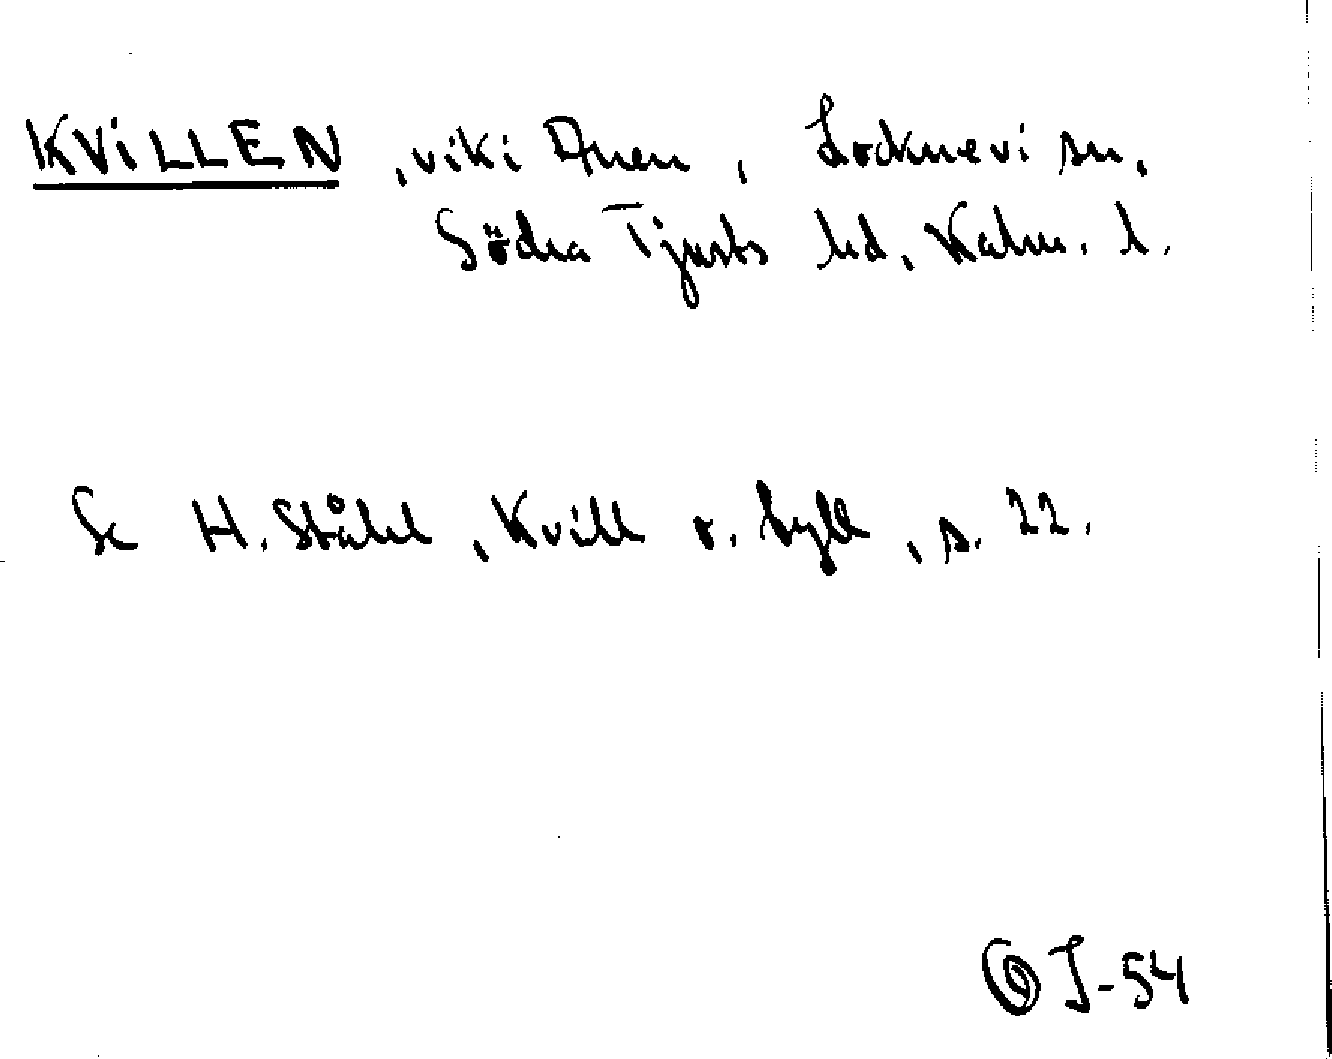 KVILLEN, vik i Anen, Locknevi sn,
Södra Tjusts hd, Kalm. l.
Se H. Ståhl, Kvill o. tyll, s. 22.
OJ-54